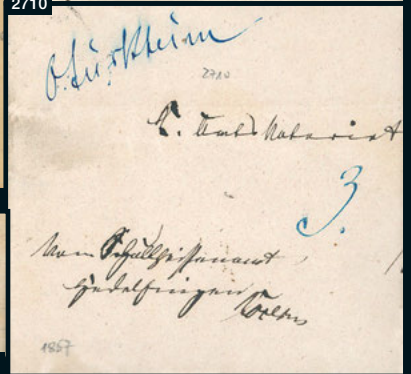 2710
O. Türkheim
2710
K. Amts Notariat
3.
Vom Schultheissenamt
Hedelfingen
1867